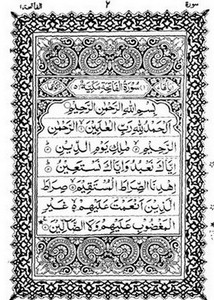 سورة ٢ الفاتحة
سُوْرَةُ الْفَاتِحَةِ مَكِّيَّةٌ
بِسْمِ اللهِ الرَّحْمٰنِ الرَّحِيْمِ
اَلْحَمْدُ لِلّٰهِ رَبِّ الْعٰلَمِيْنَ ۝ الرَّحْمٰنِ
الرَّحِيْمِ ۝ مٰلِكِ يَوْمِ الدِّيْنِ ۝
اِيَّاكَ نَعْبُدُ وَاِيَّاكَ نَسْتَعِيْنُ ۝
اِهْدِنَا الصِّرَاطَ الْمُسْتَقِيْمَ ۝ صِرَاطَ
الَّذِيْنَ اَنْعَمْتَ عَلَيْهِمْ ۝ غَيْرِ
الْمَغْضُوْبِ عَلَيْهِمْ وَلَا الضَّآلِّيْنَ ۝